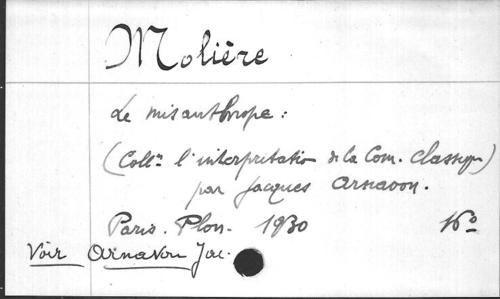 Molière
Le misanthrope :
(Coll^n l'interprétation de la Com. classique)
par Jacques Arnavon.
Paris. Plon. 1930 16º
Voir Arnavon Jac.